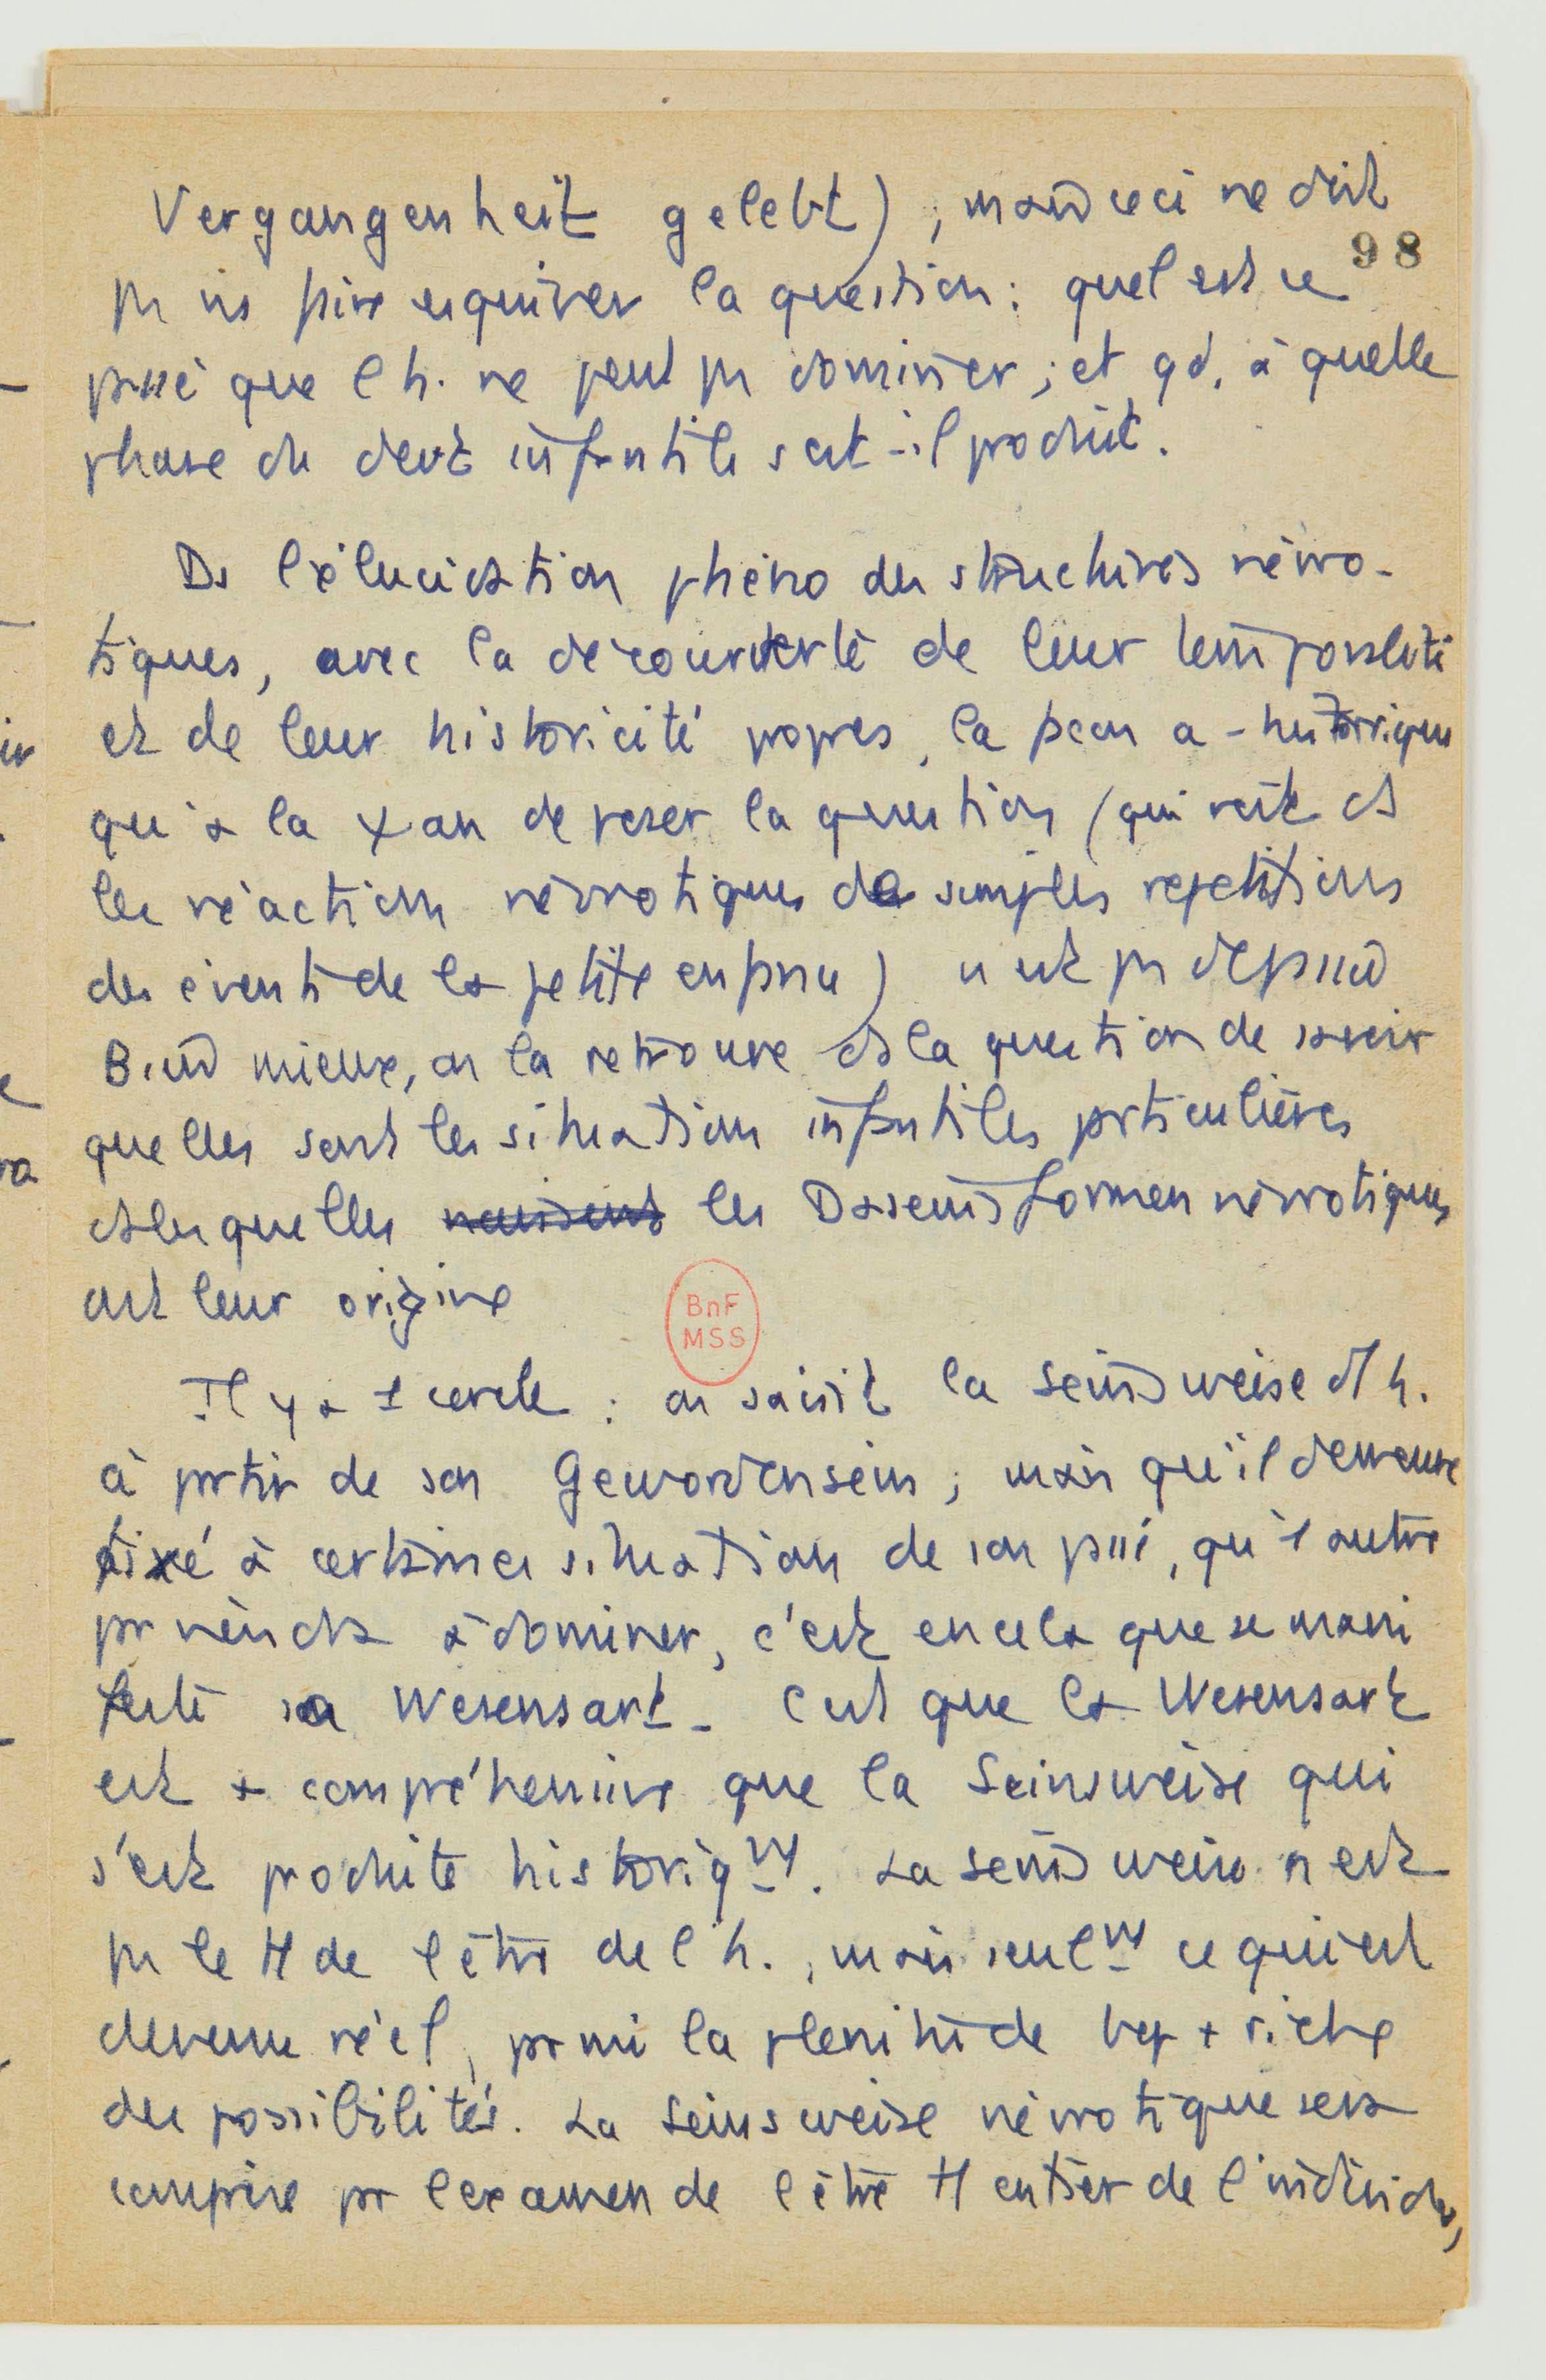 Vergangenheit gelebt), mais ceci ne doit
98
ps ns faire esquiver la question : quel est ce
passé que l h. ne peut ps dominer ; et qd, à quelle
phase du devt infantile s'est-il produit.
Ds l'élucidation phéno des structures névro-
tiques, avec la découverte de leur temporalité
et de leur historicité propres, la façon a-historique
qu'a la ψan de poser la question (qui voit ds
les réactions névrotiques de simples répétitions
des évents de la petite enfance) n'est ps dépassée
Bien mieux, on la retrouve ds la question de savoir
quelles sont les situations infantiles particulières
ds lesquelles naissent les Daseinsformen névrotiques
ont leur origine
BnF
MSS
Il y a 1 cercle : on saisit la Seinsweise d l h.
à partir de son Gewordensein ; mais qu'il demeure
fixé à certaines situations de son passé, qu'1 autre
parviendra à dominer, c'est en cela que se mani
feste sa Wesensart - C'est que la Wesensart
est + compréhensive que la Seinsweise qui
s'est produite historiqt. La Seinsweise n'est
ps le tt de l'être de l'h., mais seult ce qui est
devenu réel, parmi la plénitude bcp + riche
des possibilités. La Seinsweise névrotique sera
comprise par l'examen de l'être tt entier de l'individu,